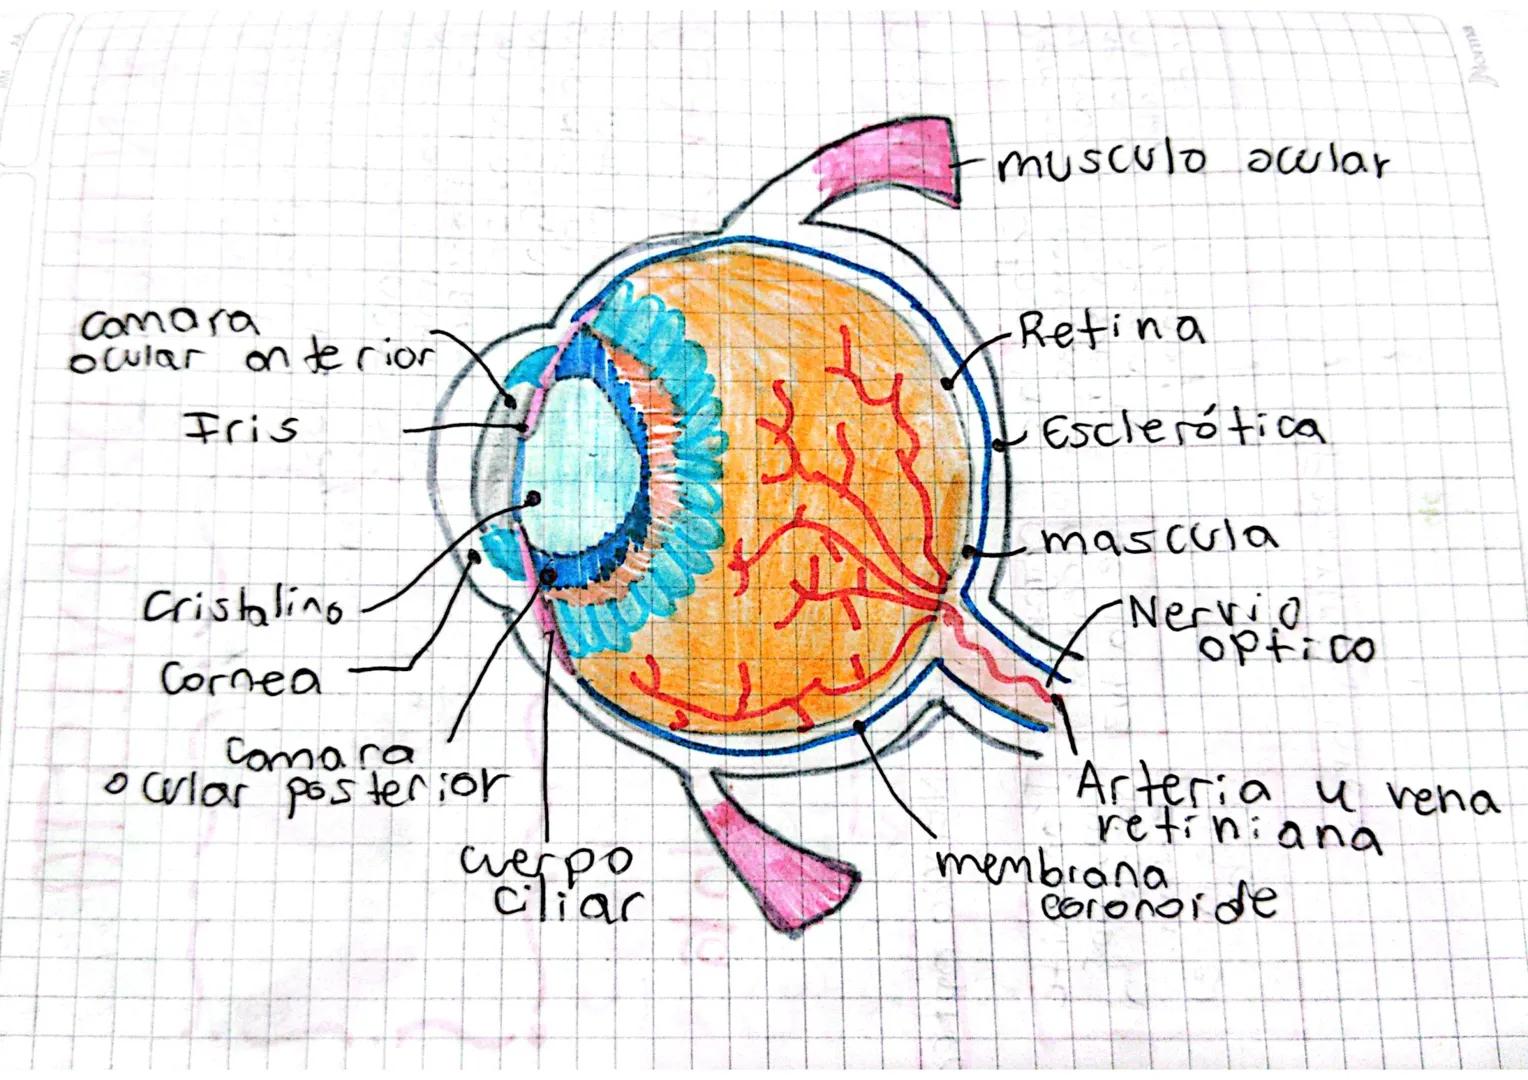 musculo ocular
camara
ocular anterior
Iris
Cristalino
Cornea
camara
ocular posterior
cuerpo
ciliar
Retina
Esclerótica
mascula
Nervio
optico
Arteria y vena
retiniana
membrana
coronoide